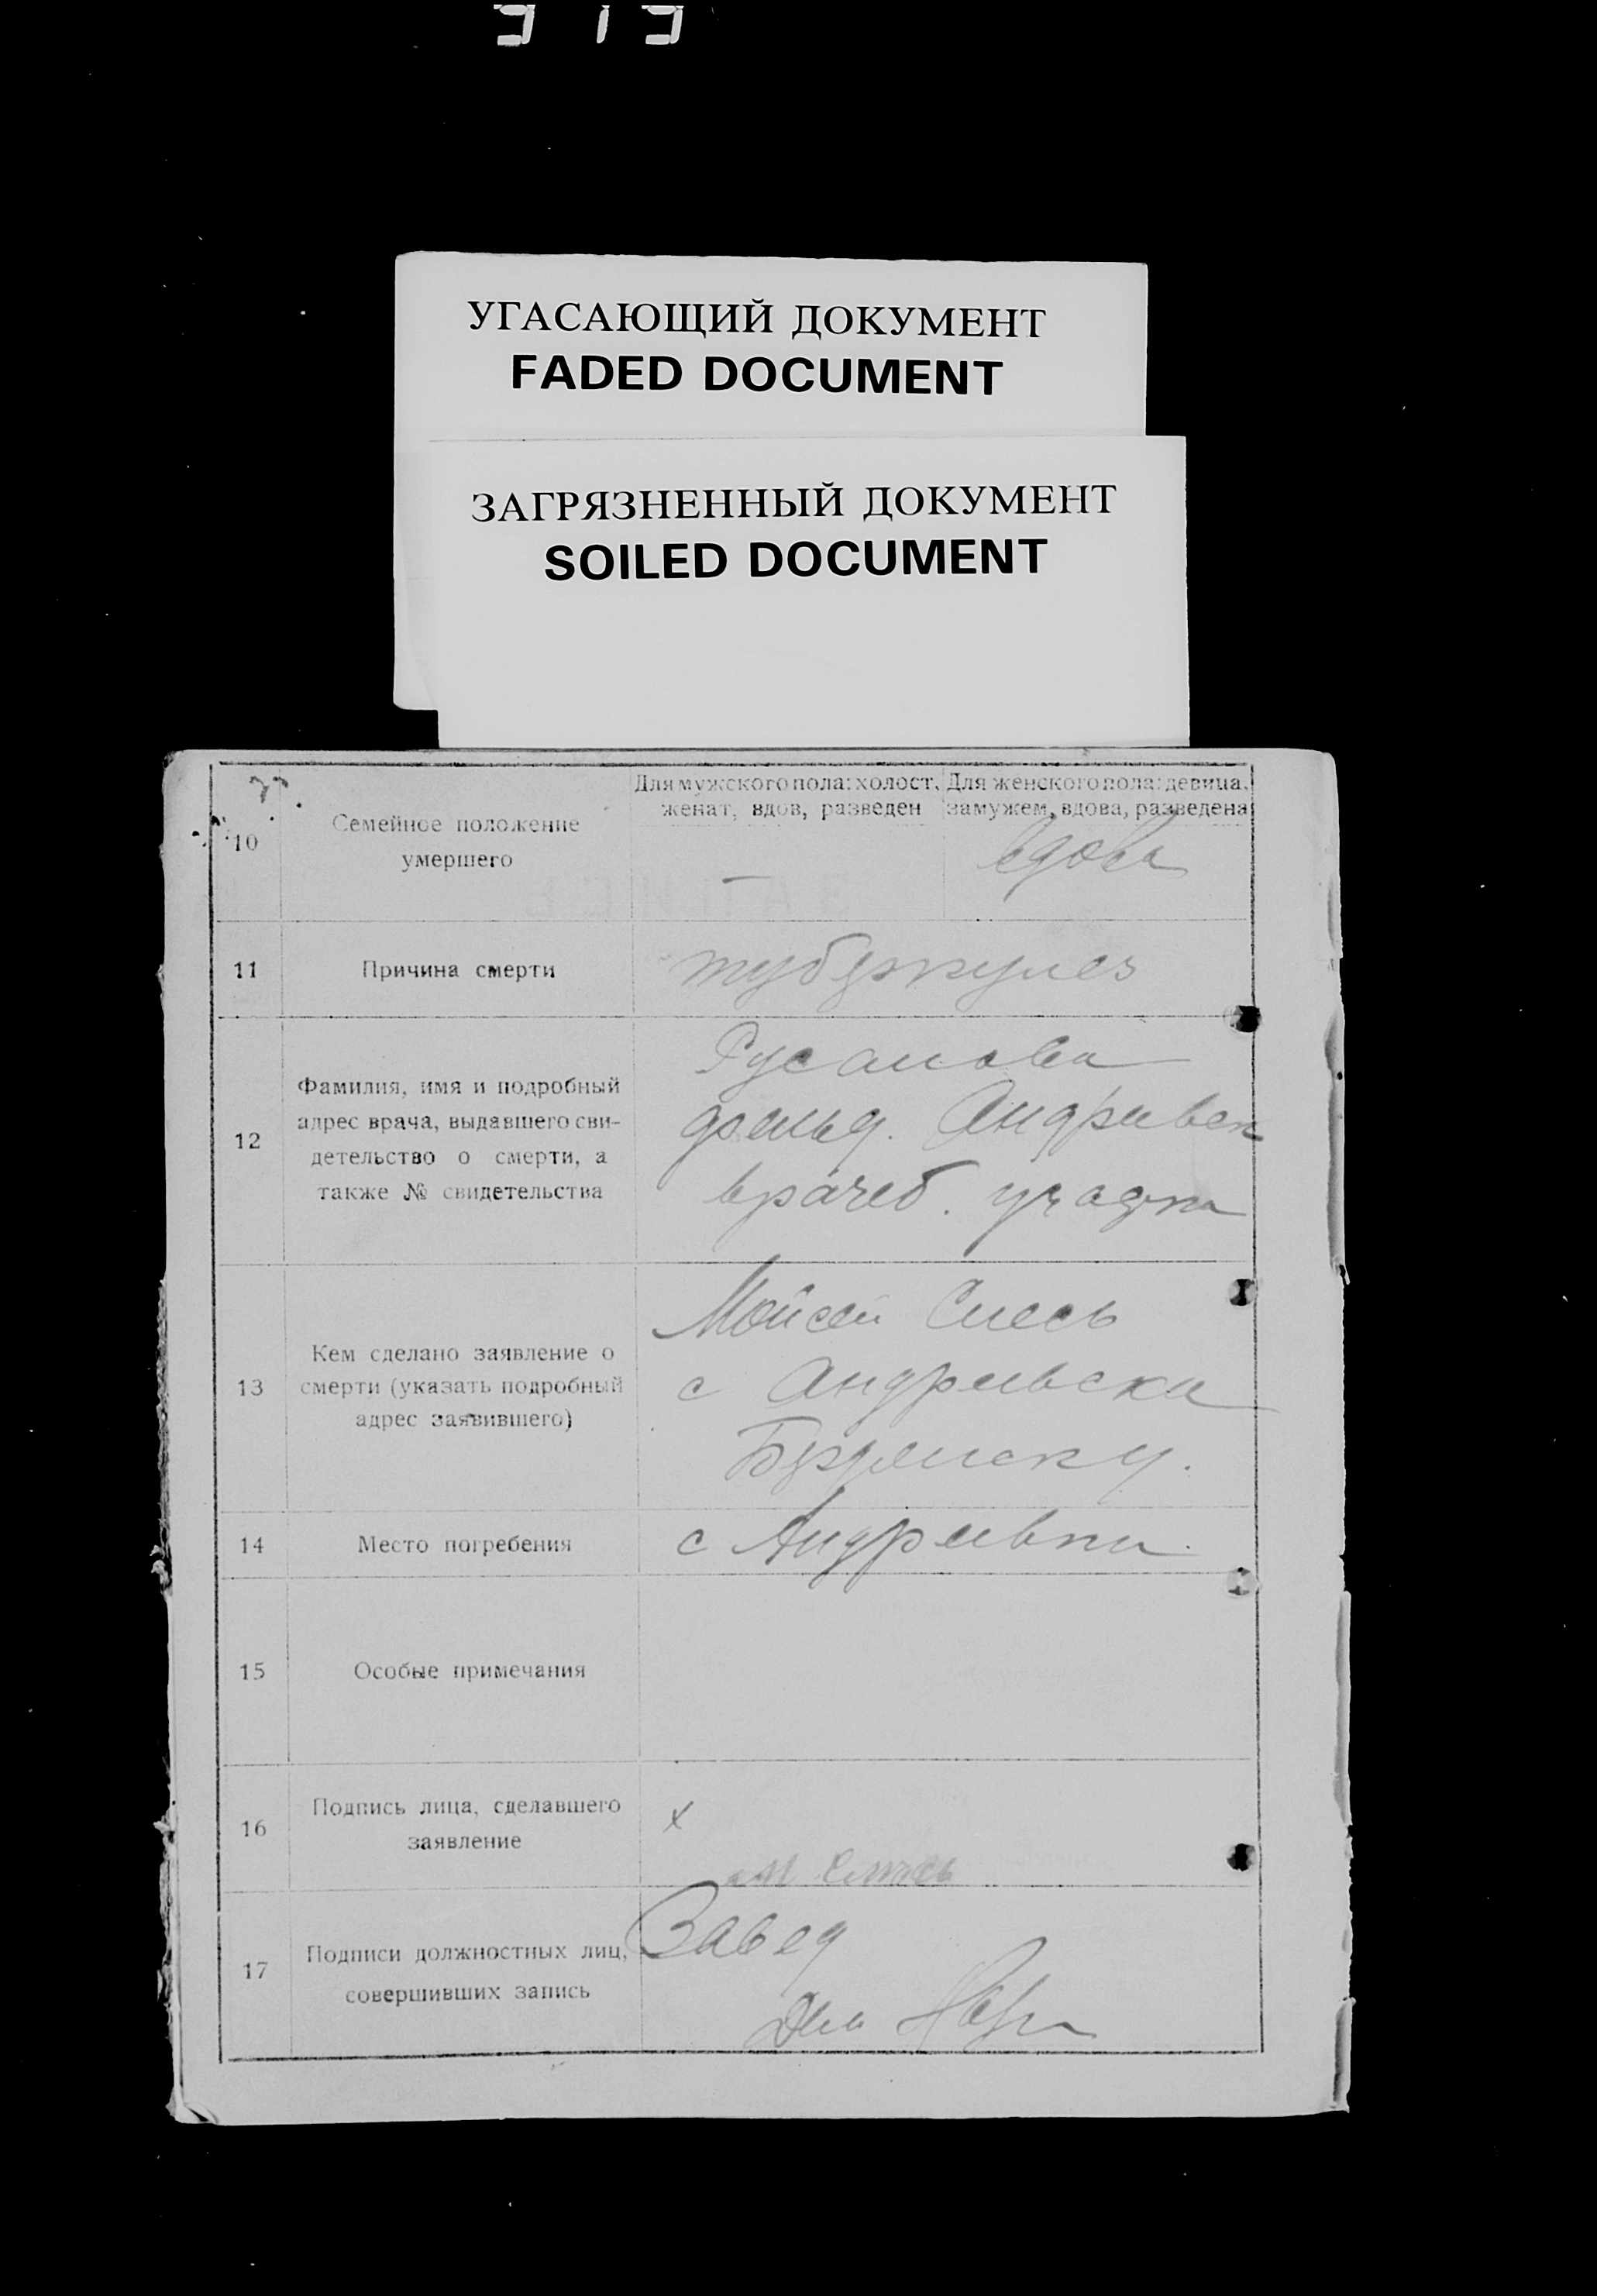 УГАСАЮЩИЙ ДОКУМЕНТ
FADED DOCUMENT
ЗАГРЯЗНЕННЫЙ ДОКУМЕНТ
SOILED DOCUMENT
10
Семейное положение
умершего
Для мужского пола: холост,
женат, вдов, разведен
Для женского пола: девица,
замужем, вдова, разведена
—
вдова
11
Причина смерти
туберкулез
12
Фамилия, имя и подробный
адрес врача, выдавшего сви-
детельство о смерти, а
также № свидетельства
Русанова
фельд.
врачеб.
13
Кем сделано заявление о
смерти (указать подробный
адрес заявившего)
Мойсей
с
14
Место погребения
с Андреевка
15
Особые примечания
16
Подпись лица, сделавшего
заявление
х
17
Подписи должностных лиц,
совершивших запись
Завед